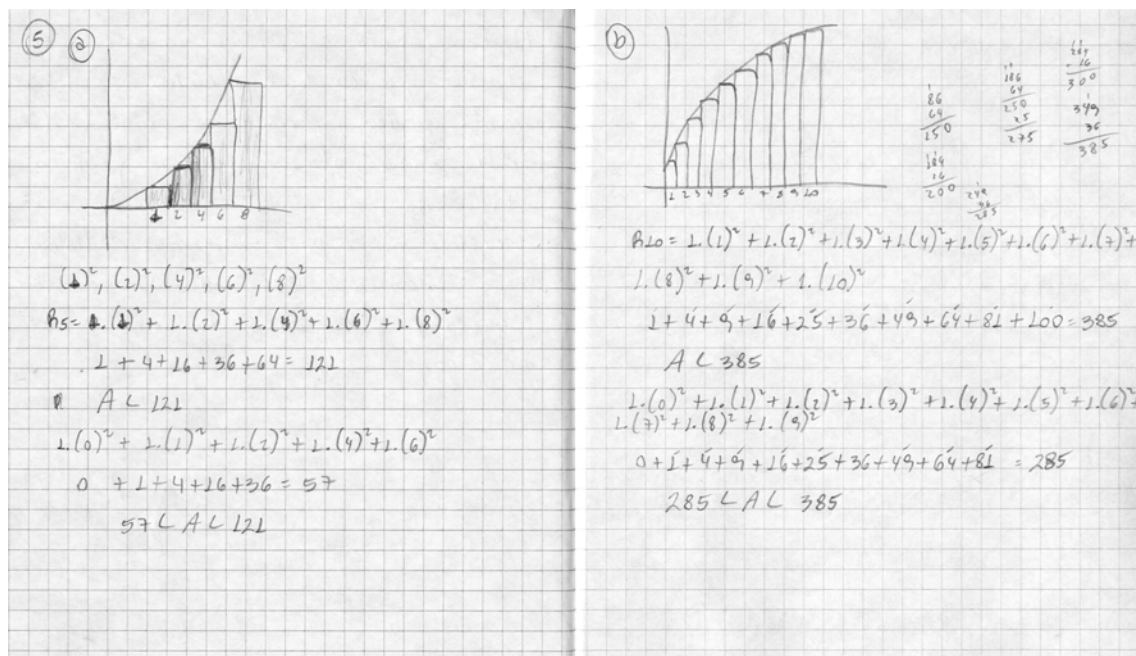 5 a
1 2 4 6 8
(1)², (2)², (4)², (6)², (8)²
R5= 1.(1)² + 1.(2)² + 1.(4)² + 1.(6)² + 1.(8)²
1 + 4 + 16 + 36 + 64 = 121
A < 121
1.(0)² + 1.(1)² + 1.(2)² + 1.(4)² + 1.(6)²
0 + 1 + 4 + 16 + 36 = 57
57 < A < 121
b
1 2 3 4 5 6 7 8 9 10
86
64
150
186
64
250
25
275
284
16
300
349
36
385
184
16
200
249
36
285
R10 = 1.(1)² + 1.(2)² + 1.(3)² + 1.(4)² + 1.(5)² + 1.(6)² + 1.(7)² +
1.(8)² + 1.(9)² + 1.(10)²
1 + 4 + 9 + 16 + 25 + 36 + 49 + 64 + 81 + 100 = 385
A < 385
1.(0)² + 1.(1)² + 1.(2)² + 1.(3)² + 1.(4)² + 1.(5)² + 1.(6)² +
1.(7)² + 1.(8)² + 1.(9)²
0 + 1 + 4 + 9 + 16 + 25 + 36 + 49 + 64 + 81 = 285
285 < A < 385